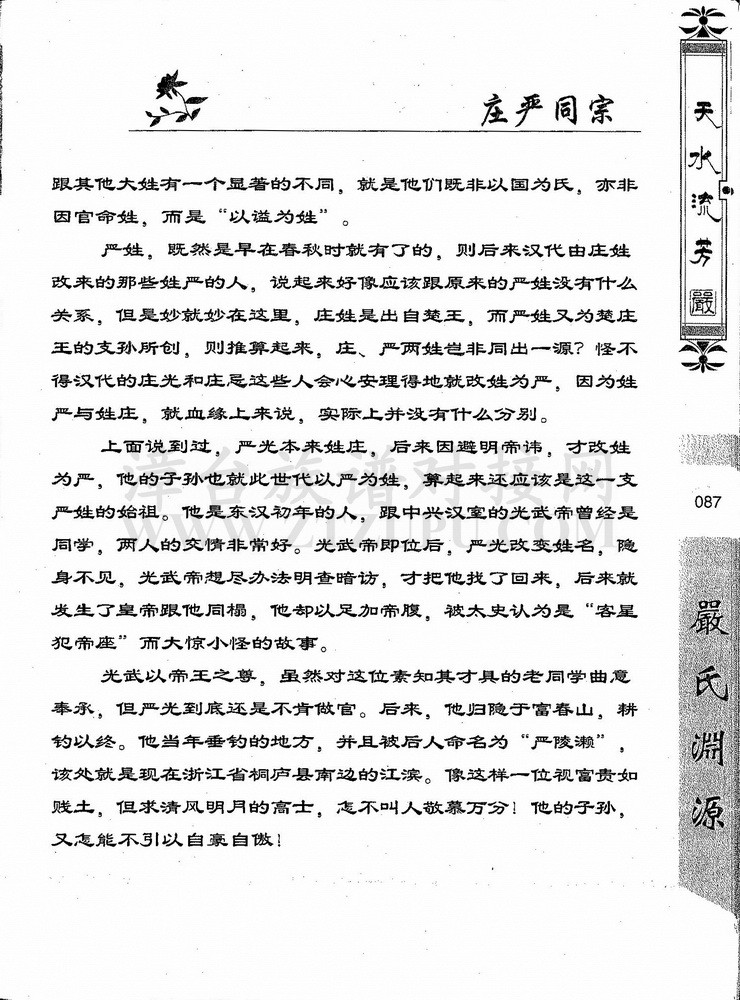 庄严同宗
跟其他大姓有一个显著的不同，就是他们既非以国为氏，亦非
因官命姓，而是“以谥为姓”。
严姓，既然是早在春秋时就有了的，则后来汉代由庄姓
改来的那些姓严的人，说起来好像应该跟原来的严姓没有什么
关系，但是妙就妙在这里，庄姓是出自楚王，而严姓又为楚庄
王的支孙所创，则推算起来，庄、严两姓岂非同出一源？怪不
得汉代的庄光和庄忌这些人会心安理得地就改姓为严，因为姓
严与姓庄，就血缘上来说，实际上并没有什么分别。
上面说到过，严光本来姓庄，后来因避明帝讳，才改姓
为严，他的子孙也就此世代以严为姓，算起来还应该是这一支
严姓的始祖。他是东汉初年的人，跟中兴汉室的光武帝曾经是
同学，两人的交情非常好。光武帝即位后，严光改变姓名，隐
身不见，光武帝想尽办法明查暗访，才把他找了回来，后来就
发生了皇帝跟他同榻，他却以足加帝腹，被太史认为是“客星
犯帝座”而大惊小怪的故事。
光武以帝王之尊，虽然对这位素知其才具的老同学曲意
奉承，但严光到底还是不肯做官。后来，他归隐于富春山，耕
钓以终。他当年垂钓的地方，并且被后人命名为“严陵濑”，
该处就是现在浙江省桐庐县南边的江滨。像这样一位视富贵如
贱土，但求清风明月的高士，怎不叫人敬慕万分！他的子孙，
又怎能不引以自豪自傲！
天水流芳
嚴
087
嚴氏淵源